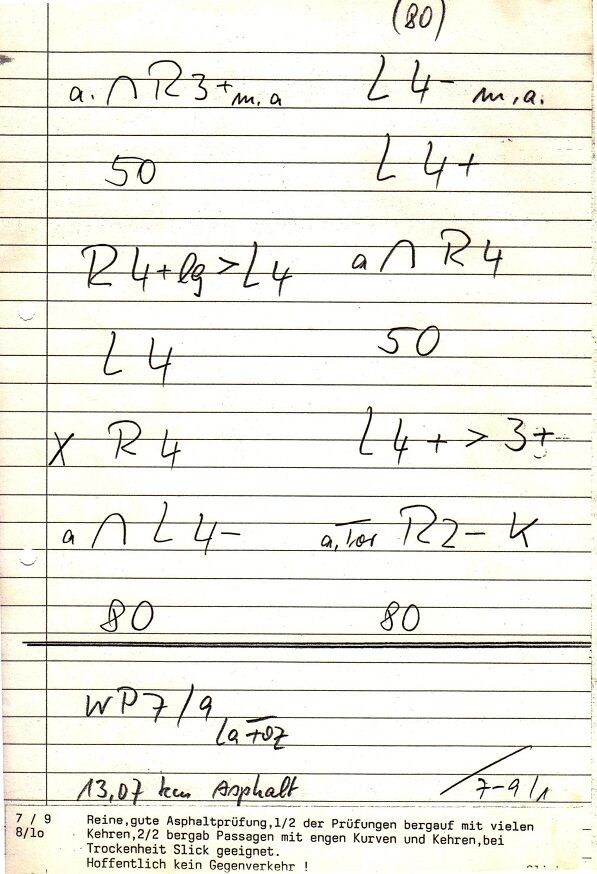 (80)
a. ∩ R3+ m.a
50
R4+ lg > L4
L 4
X R 4
a ∩ L 4-
80
L 4- m.a.
L 4+
a ∩ R 4
50
L 4+ > 3+
a, Tor R2- K
80
WP 7/9
13,07 km Asphalt
7-9/1
7 / 9 Reine,gute Asphaltprüfung,1/2 der Prüfungen bergauf mit vielen
8/lo Kehren,2/2 bergab Passagen mit engen Kurven und Kehren,bei
Trockenheit Slick geeignet.
Hoffentlich kein Gegenverkehr !